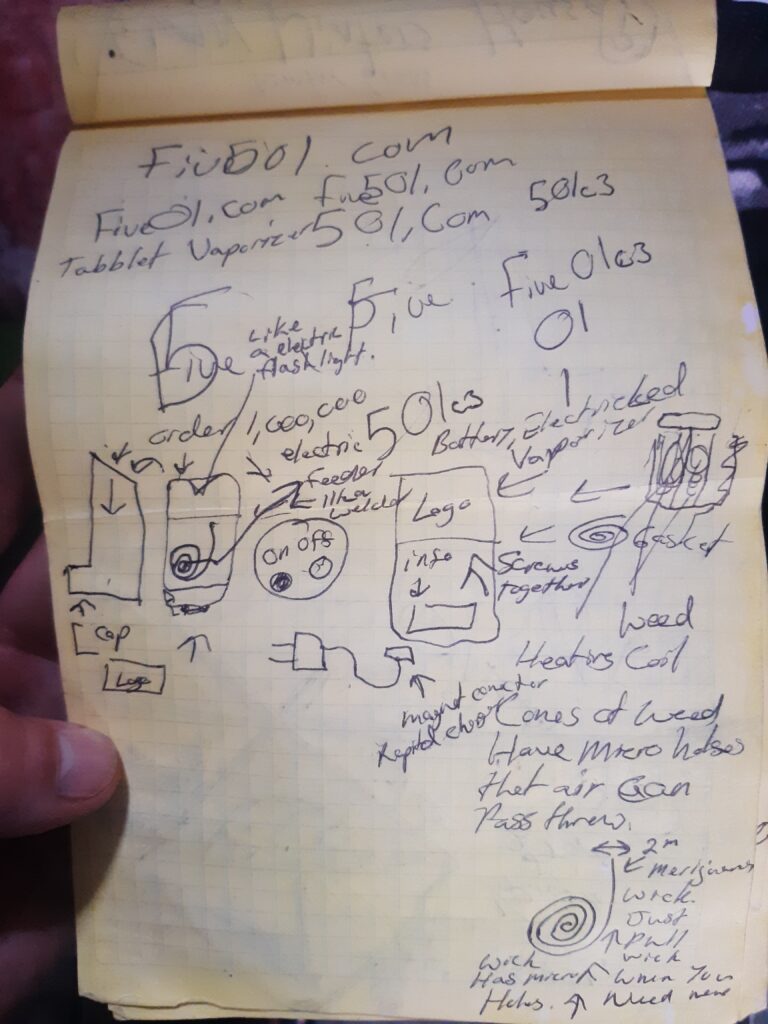 Five501.com
Five01.com five501.com
Tabblet Vaporizer 501.com 501c3
Five 5ive Five01c3
01
Like
a electric
flashlight.
order 1,000,000 501c3
electric
Feeder
like a
welder
Battery, Electricked
Vaporizer
Logo
on off
info
Screws
together
Gasket
cap
Logo
Weed
Heating Coil
magnet conector
Cones of weed
Have Micro holes
that air Can
Pass threw.
2m
wick.
Just
Pull
wick
When You
Need more
wick
Has micro
Holes.